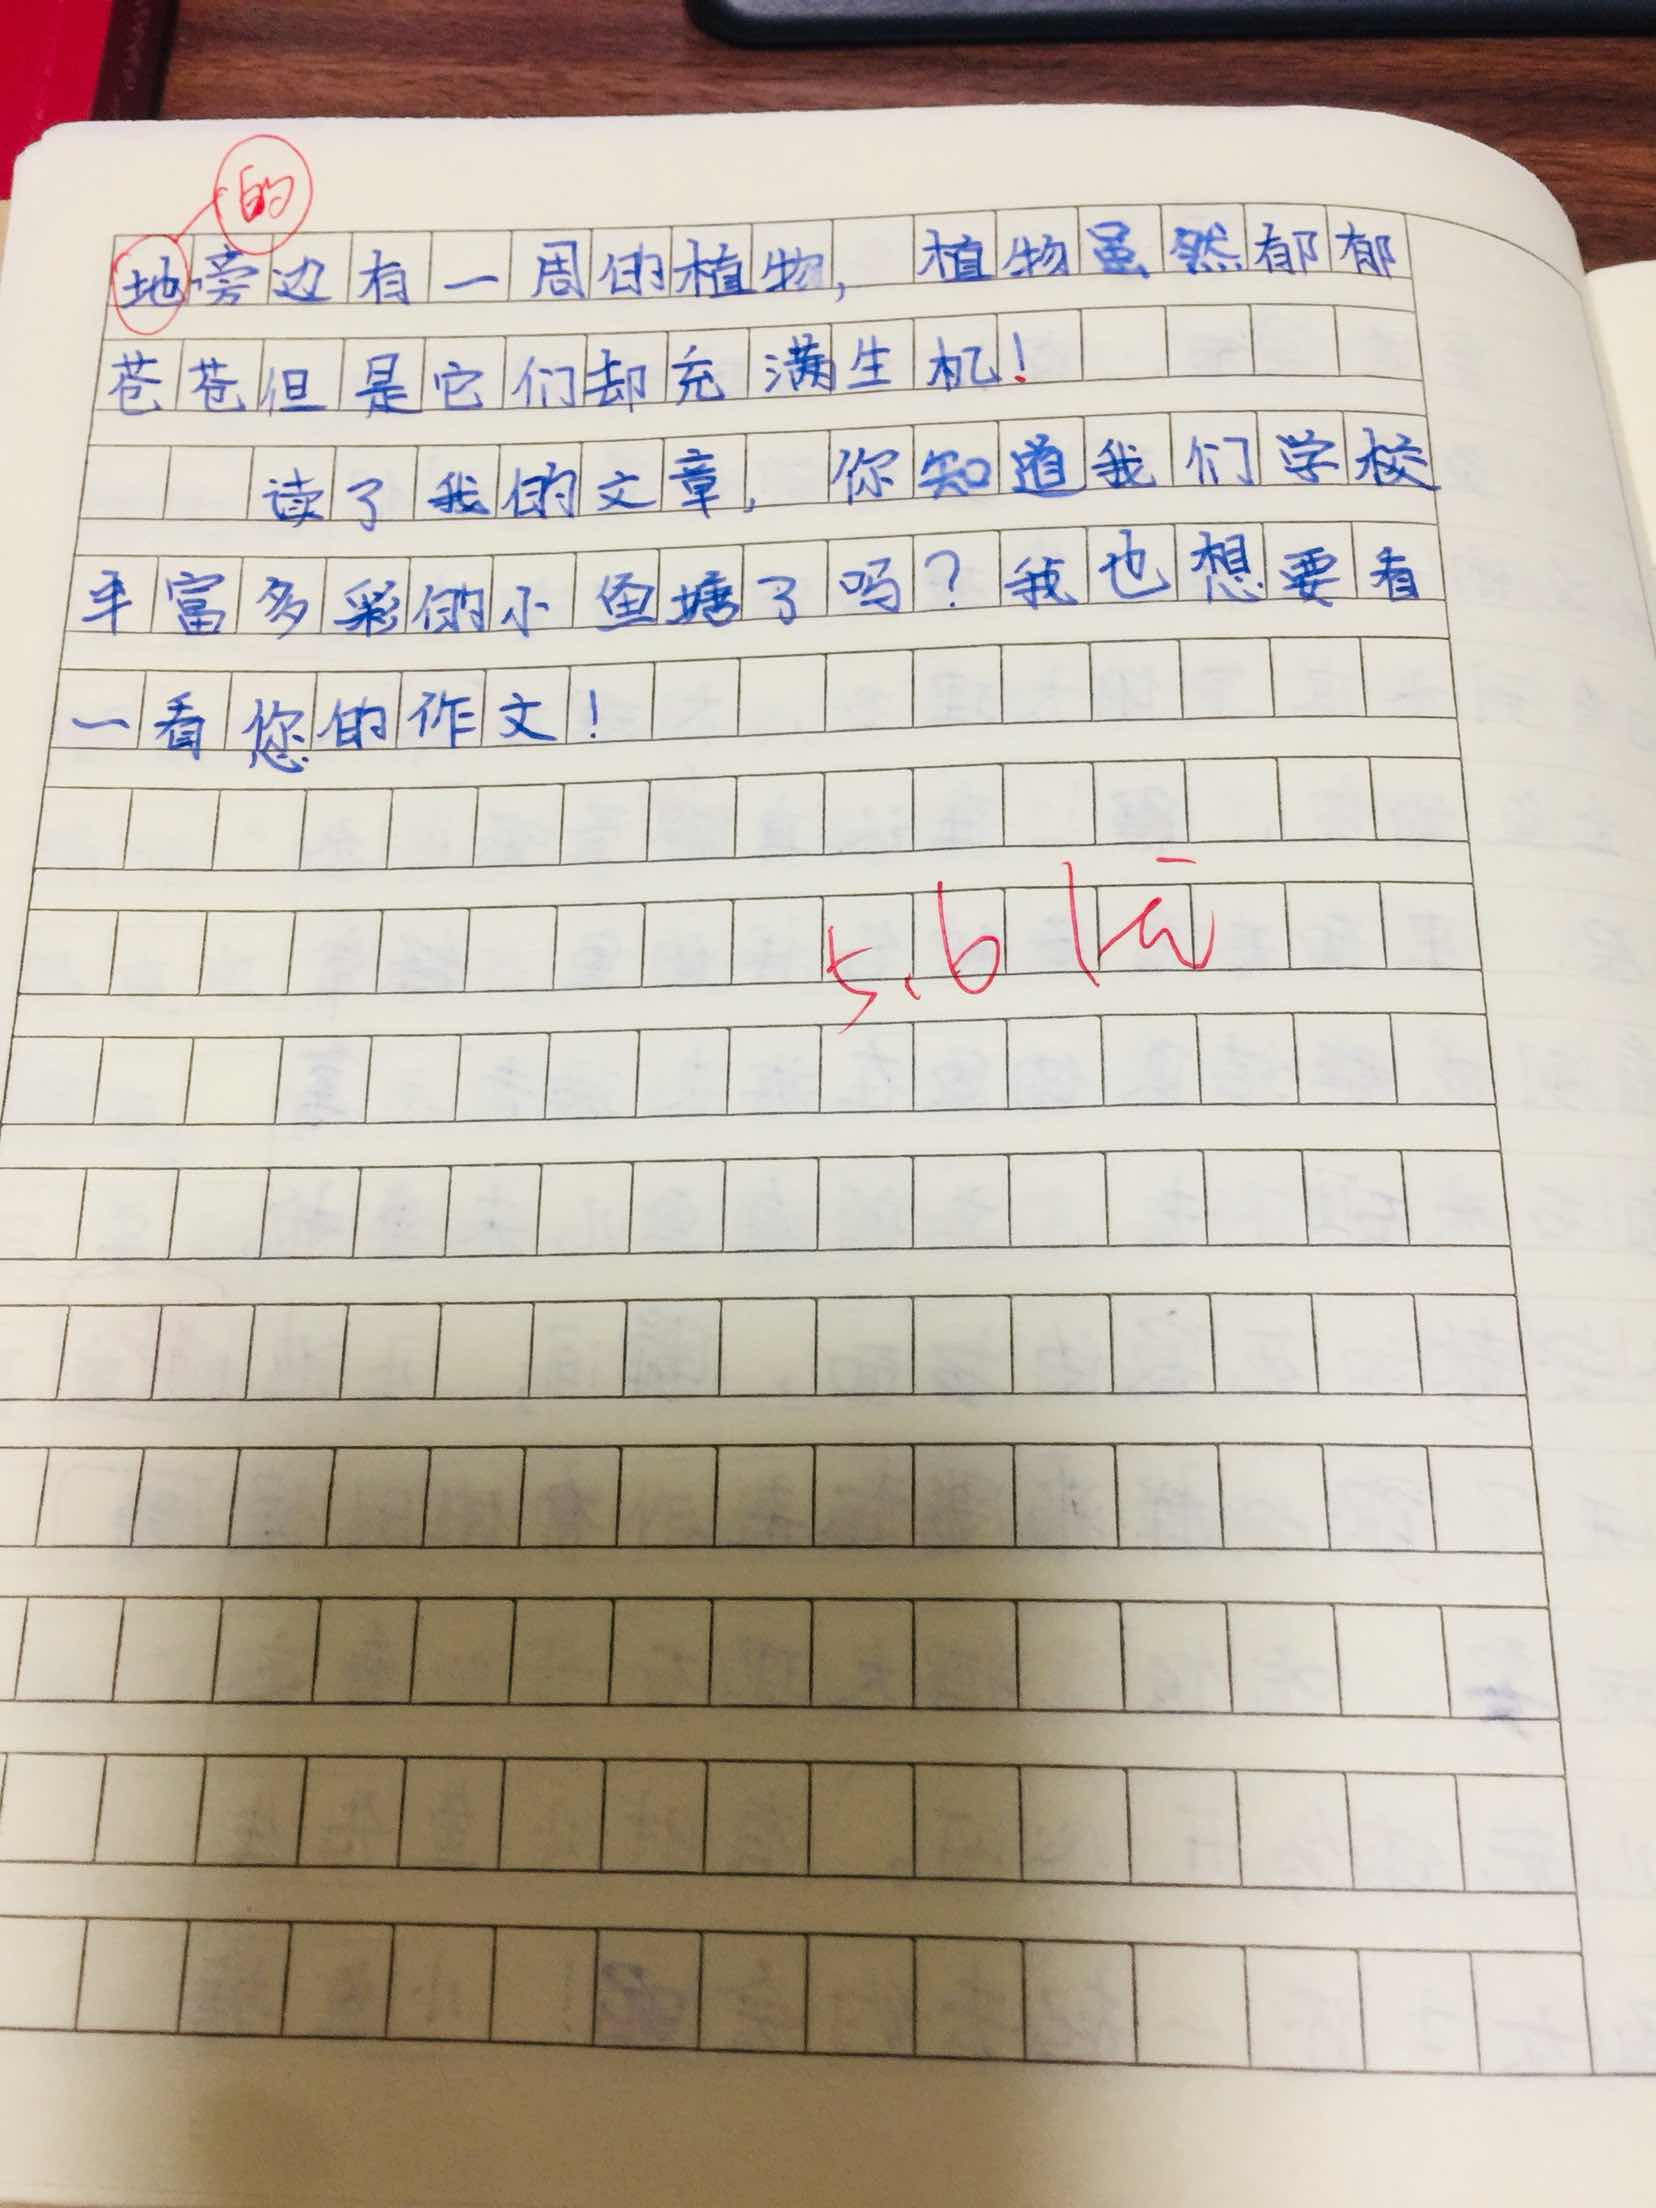 的
地旁边有一周的植物，植物虽然郁郁
苍苍但是它们却充满生机！
读了我的文章，你知道我们学校
丰富多彩的小鱼塘了吗？我也想要看
一看您的作文！
5.6